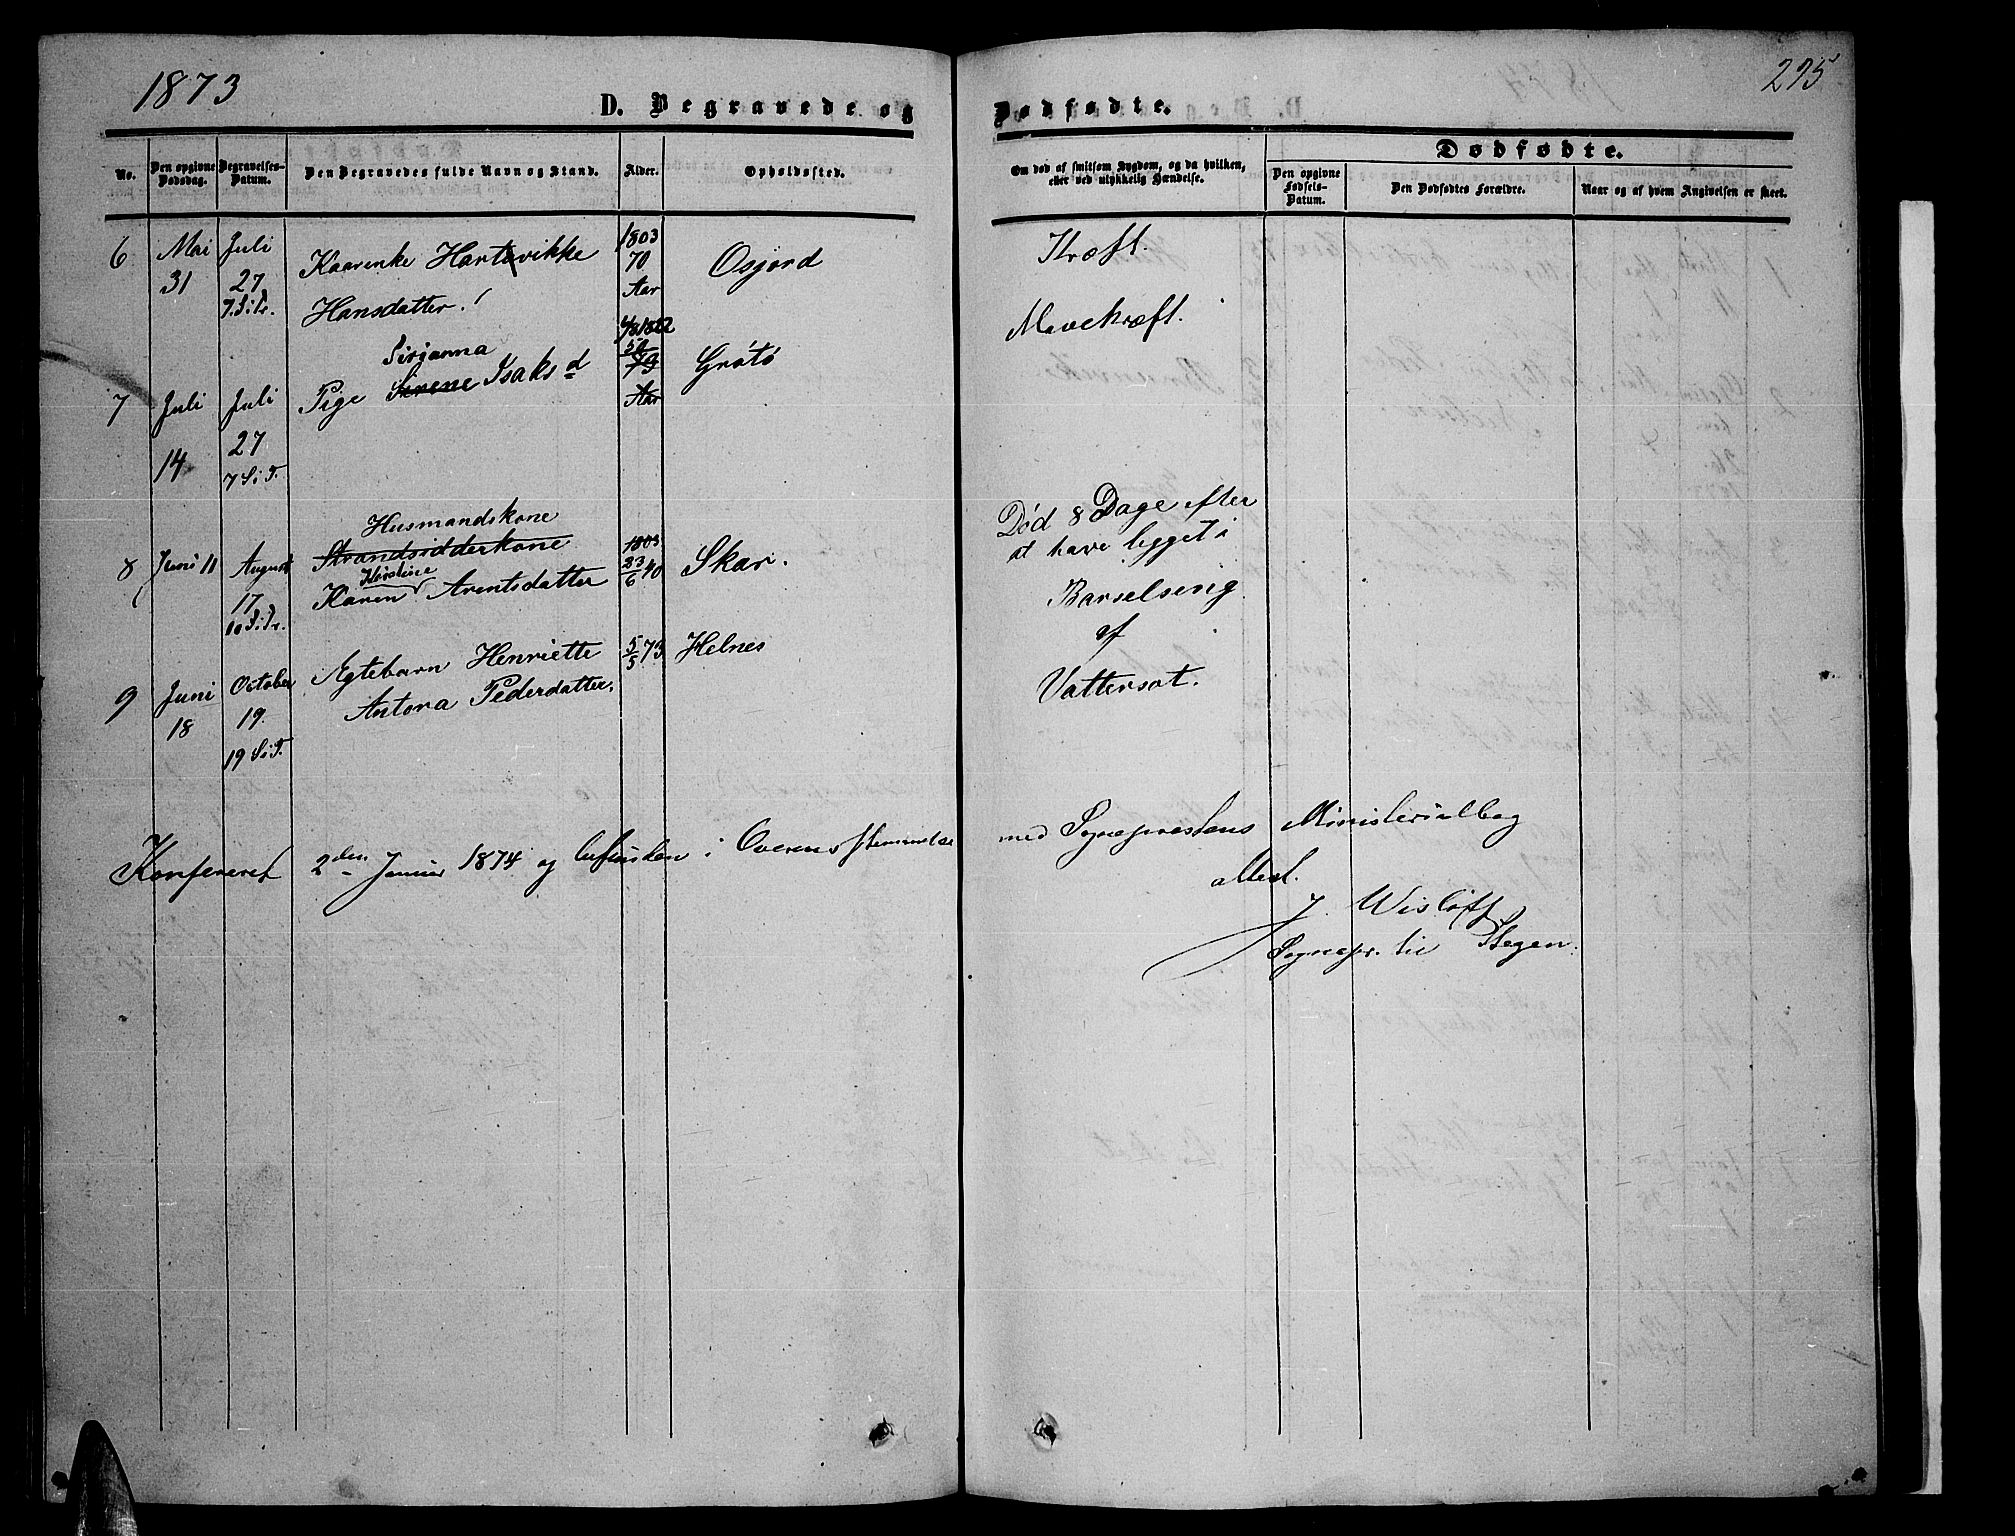 1873
295
D. Begravede og Dødfødte.
No.
Den opgivne Dødsdag.
Begravelses-Datum.
Den Begravedes fulde Navn og Stand.
Alder.
Opholdssted.
Om død af smitsom Sygdom, og da hvilken, eller ved ulykkelig Hændelse.
Dødfødte.
Den opgivne Fødsels-Datum.
Den Dødfødtes Forældre.
Naar og af hvem Angivelsen er skeet.
6 Mai Juli Kaarenke Hartvikke 1803 Osjord Kræft.
31 27 Hansdatter! 70
7. S. i Tr. Aar
Mavekræft.
Sirianna 1802
7 Juli Juli Pige Sirene Isaks d Grøtø
14 27 Aar
7 S i T.
Husmandskone Død 8 Dage efter
Strandsidderkone 1803 at have ligget i
8 Juni 11 August Kirstine 23/6 40 Skar. Barselseng
17 Karen Arentsdatter af
10 S. i Tr. Vattersot.
9 Juni October Egtebarn Henriette 5/5 73 Helnes
18 19. Antora Pedersdatter.
19 S i T.
Konfereret 2den Januar 1874 og befunden i Overensstemmelse med Sognepræstens Ministerialbog
attest.
J. Wisløff
Sognepr. til Stegen.